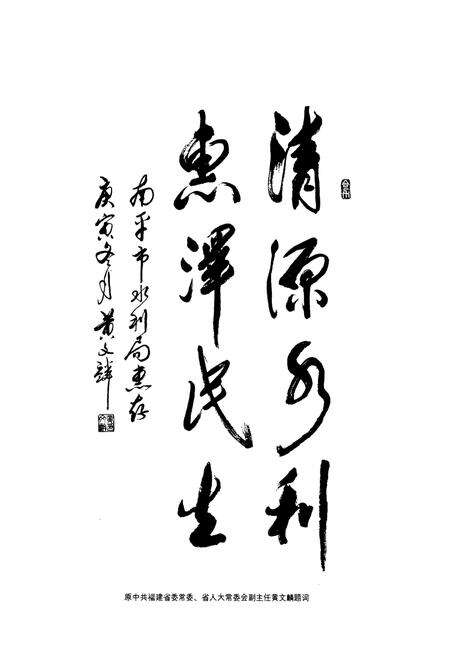 清源水利
惠泽民生
南平市水利局惠存
庚寅冬月黄文麟
原中共福建省委常委、省人大常委会副主任黄文麟题词